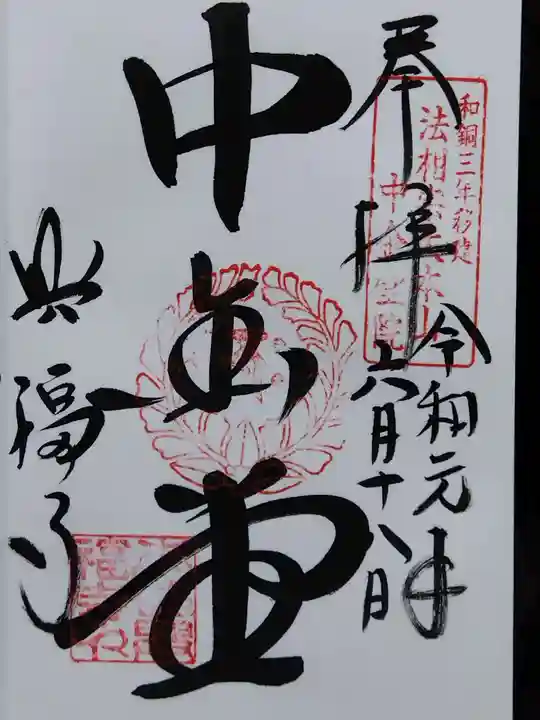 和銅三年移建
法相宗大本山
中金堂院
奉拝
令和元年
六月十八日
中金堂
興福寺